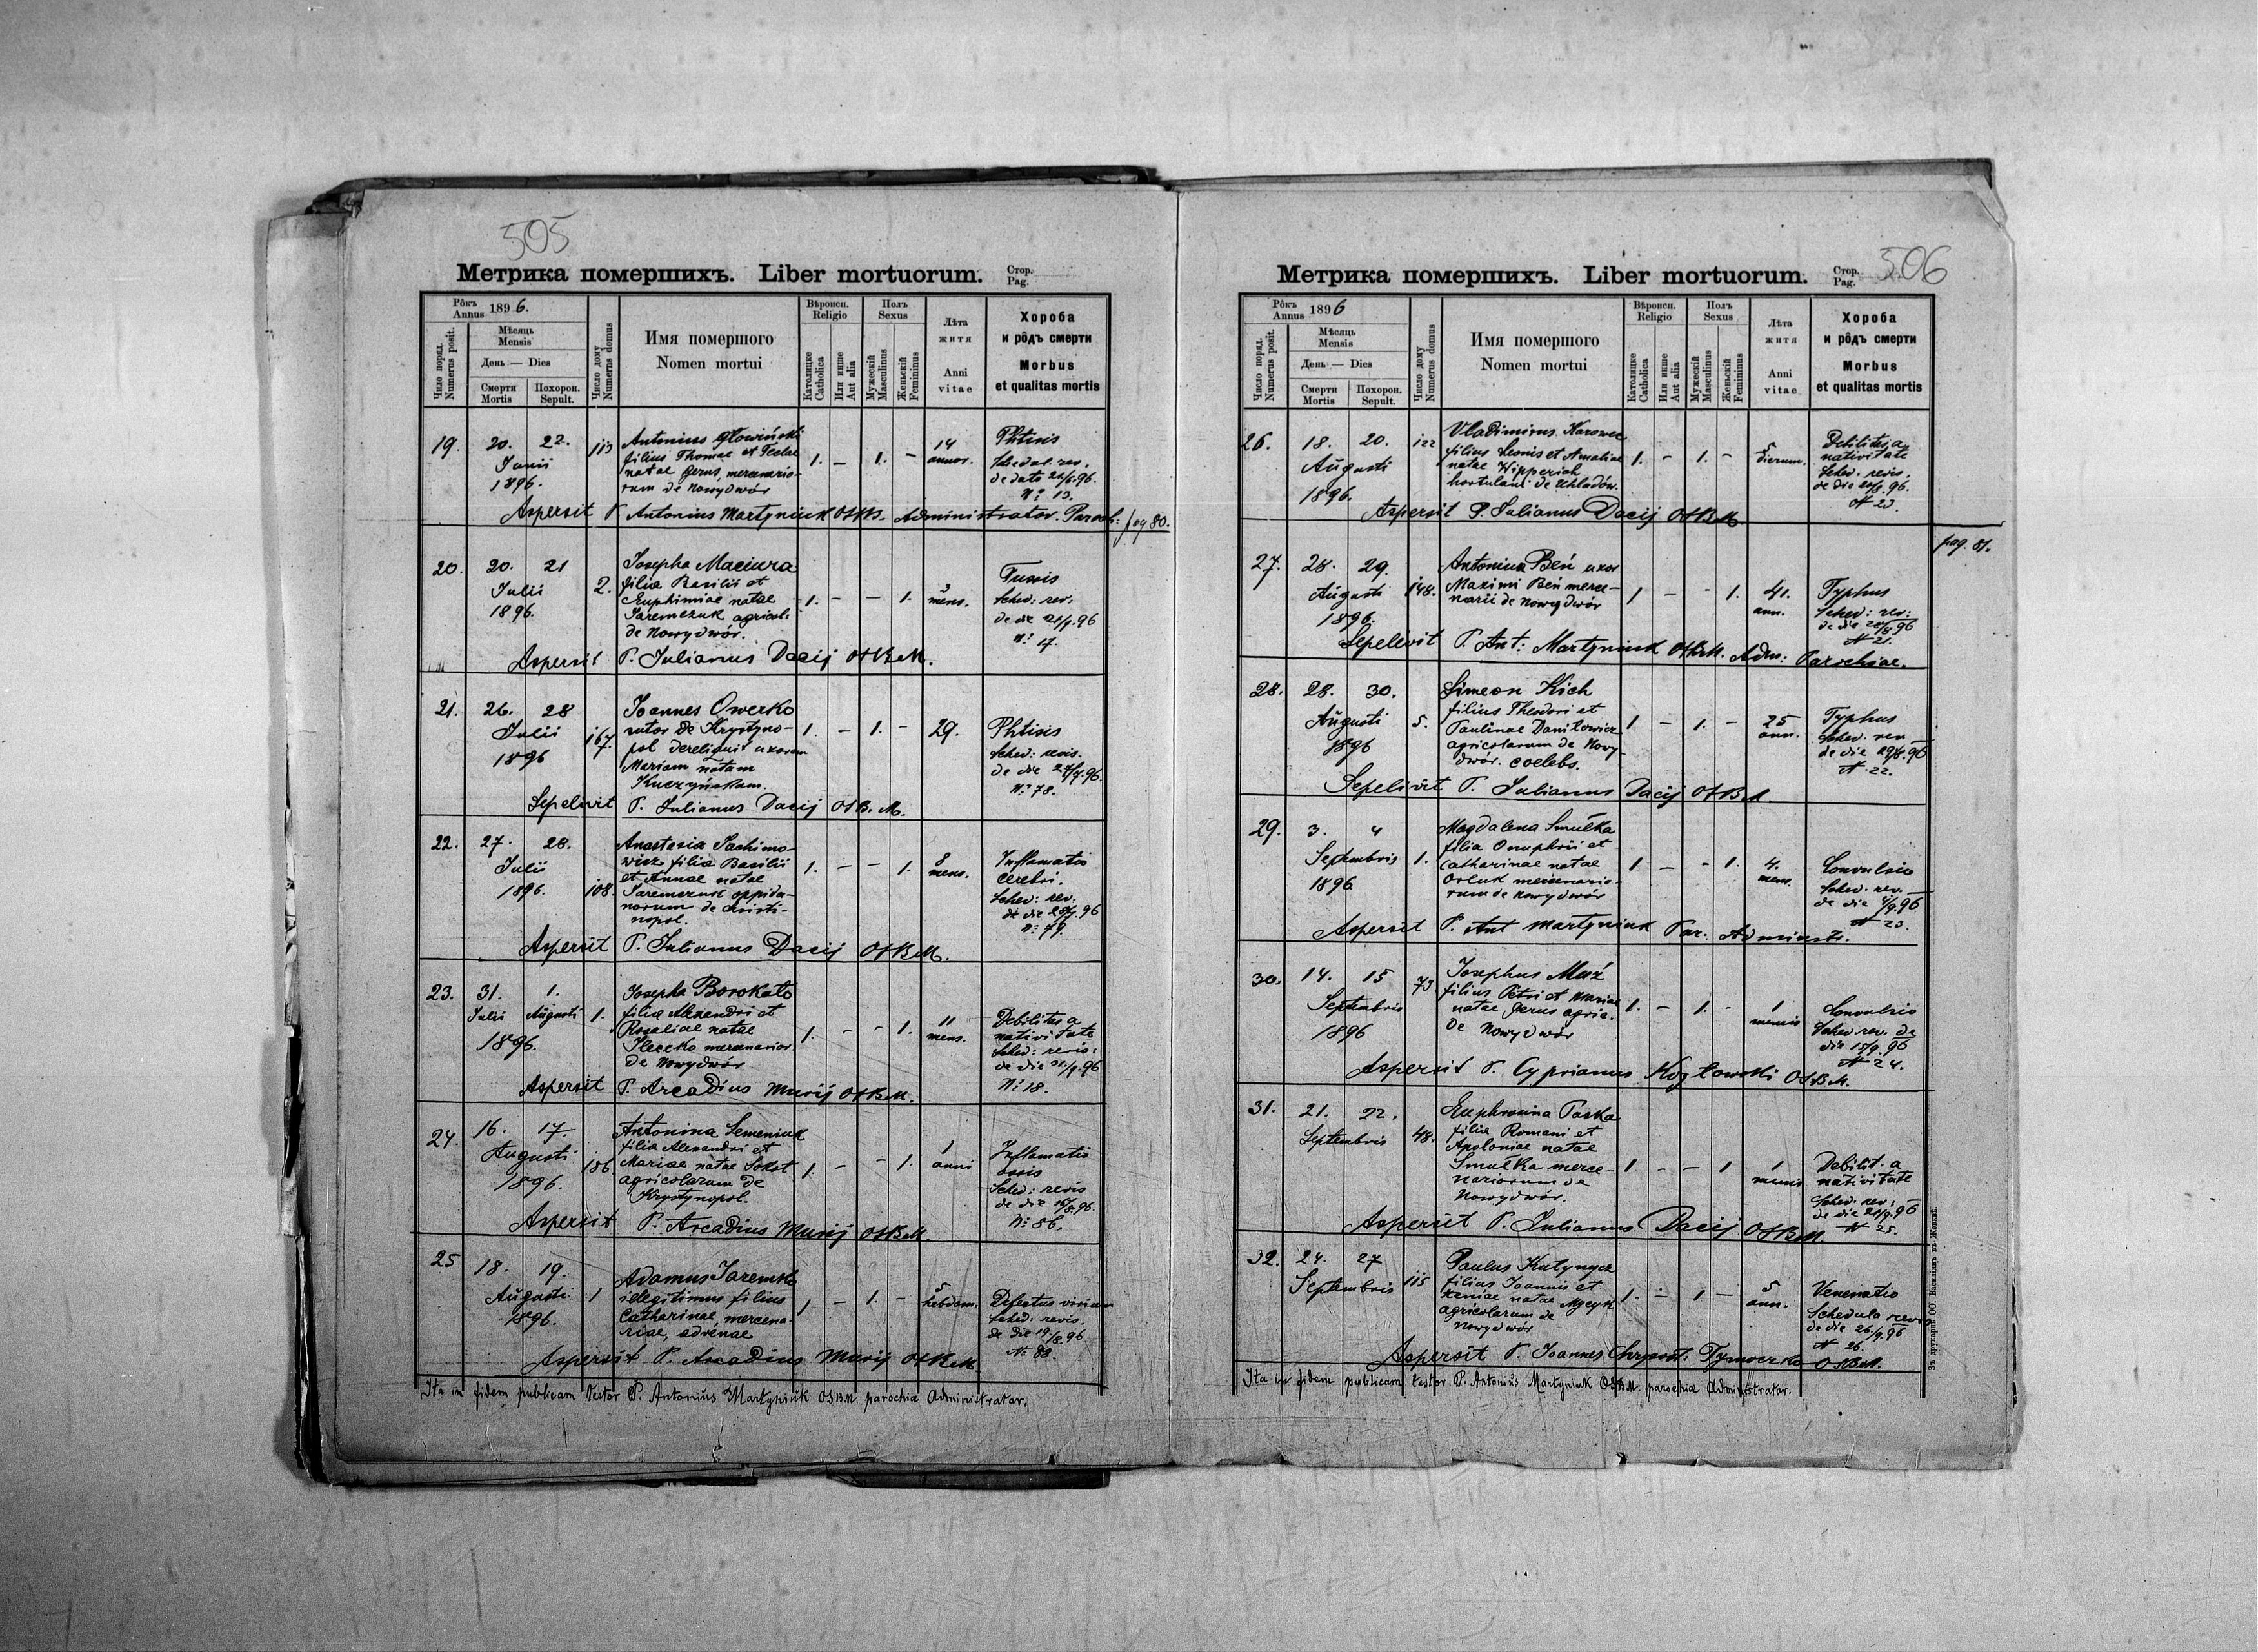 505
Метрика померших. Liber mortuorum. Стор. Pag.
Рôкъ Annus 1896.
Число поряд. Numerus posit.
Мѣсяць Mensis
День — Dies
Смерти Mortis
Похорон. Sepult.
Число дому Numerus domus
Имя помершого
Nomen mortui
Вѣроисп. Religio
Католицке Catholica
Или инше Aut alia
Полъ Sexus
Мужескій Masculinus
Женьскій Femininus
Лѣта житя
Anni vitae
Хороба
и рôдъ смерти
Morbus
et qualitas mortis
19. 20. 22. Junii 1896. 113
Antonius Głowiński
filius Thomae et Teclae
natae Gerus, mercenario-
rum de Nowydwór
1. — 1. — 14 annor.
Phtisis
Sched. rev.
de dato
Nº 13.
Aspersit P. Antonius Martyniuk OSBM. Administrator. Paroch:
pag 80.
20. 20. 21 Julii 1896. 2.
Josepha Maciura
filia Basilii et
Euphimiae natae
Jaremczuk agricol:
de Nowydwór.
1. — — 1. 3 mens.
Tussis
Sched: rev:
de die 21/7.96
Nº 17.
Aspersit P. Julianus Dacij OSBM.
21. 26. 28 Julii 1896 167.
Joannes Owerko
sutor de Krystyno-
pol dereliquit uxorem
Mariam natam
Kuczyńskam.
1. — 1. — 29.
Phtisis
Sched: revis.
de die 27/7.96.
Nº 78.
Sepelivit P. Julianus Dacij OSB.M.
22. 27. 28. Julii 1896. 108.
Anastasia Jachimo-
wicz filia Basilii
et Annae natae
Jaremczuk oppida-
norum de Christi-
nopol.
1. — — 1. 8 mens.
Inflamatio
cerebri.
Sched: rev:
de die 28/7.96
Nº 79.
Aspersit P. Julianus Dacij OSBM.
23. 31. Julii 1. Augusti 1896. 1.
Josepha Borokato
filia Alexandri et
Rosaliae natae
mercenarior.
de Nowydwór
1. — — 1. 11 mens.
Debilitas a
nativitate
Sched: revis:
de die
Nº 18.
Aspersit P. Arcadius Murij OSBM.
24. 16. 17. Augusti 1896. 186
Antonina Semeniuk
filia Alexandri et
Mariae natae Sokot
agricolarum de
Krystynopol.
1. — — 1. 1 anni
Inflamatio
ossis
Sched: revis
de die
Nº 86.
Aspersit P. Arcadius Murij OSBM.
25 18. 19. Augusti 1896. 1
Adamus Jaremko
illegitimus filius
Catharinae, mercena-
riae, advenae
1 — 1. — 5 hebdom.
Defectus virium
Sched. revis.
de die 19/8.96
Nº 89.
Aspersit P. Arcadius Murij OSBM.
Ita in fidem publicam testor P. Antonius Martyniuk OSBM. parochia Administrator.
506
Метрика померших. Liber mortuorum. Стор. Pag.
Рôкъ Annus 1896
Число поряд. Numerus posit.
Мѣсяць Mensis
День — Dies
Смерти Mortis
Похорон. Sepult.
Число дому Numerus domus
Имя помершого
Nomen mortui
Вѣроисп. Religio
Католицке Catholica
Или инше Aut alia
Полъ Sexus
Мужескій Masculinus
Женьскій Femininus
Лѣта житя
Anni vitae
Хороба
и рôдъ смерти
Morbus
et qualitas mortis
26. 18. 20. Augusti 1896. 122
Vladimirus Karowec
filius Leonis et Amaliae
natae Hipperich
hortulani de Uhladów.
1. — 1. — 5 dierum.
Debilitas a
nativitate
Sched. revis.
de die 20/8.96.
N 23.
Aspersit P. Julianus Dacij OSBM
pag. 81.
27. 28. 29. Augusti 1896. 148.
Antonina Beń uxor
Maximi Beń merce-
narii de Nowydwór
1 — - 1. 41. ann.
Typhus
Sched: rev:
de die 28/8.96
N 21.
Sepelivit P. Ant: Martyniuk OSBM. Adm: Parochiae.
28. 28. 30. Augusti 1896 5.
Simeon Kich
filius Theodori et
Paulinae Daniłowicz
agricolarum de Nowy-
dwór. coelebs.
1 — 1. — 25 ann.
Typhus
Sched. rev
de die 29/8.96
N 22.
Sepelivit P. Julianus Dacij OSBM.
29. 3. 4 Septembris 1896 1.
Magdalena Smułka
filia Onuphrii et
Catharinae natae
Orluk mercenario-
rum de Nowydwór
1 — - 1. 4. mens.
Convulsio
Sched. rev.
de die 4/9.96
N 23.
Aspersit P. Ant Martyniuk Par. Administr.
30. 14. 15 Septembris 1896 73.
Josephus Maź
filius Petri et Mariae
natae Gerus agric.
de Nowydwór
1. — 1. — 1 mensis
Convulsio
Sched rev. de
die 15/9.96
N 24.
Aspersit P. Cyprianus Kozłowski OSBM.
31. 21. 22. Septembris 48.
Euphrosina Paska
filia Romani et
Apoloniae natae
Smułka merce-
nariorum de
Nowydwór.
1 — — 1 1 mensis
Debilit. a
nativitate
Sched. rev.
de die 21/9.96
N 25.
Aspersit P. Julianus Dacij OSBM.
32. 24. 27 Septembris 115
Paulus Kutynycz
filius Joannis et
Xeniae natae
agricolarum de
Nowydwór
1. — 1 — 5 ann.
Venenatio
Schedula revis
de die 26/9.96
N 26.
Aspersit P. Joannes Chrysost: Tymoczko OSBM.
Ita in fidem publicam testor P. Antonius Martyniuk OSBM. parochiae Administrator.
Зъ друкарнѣ ОО. Василіянъ въ Жовквѣ.